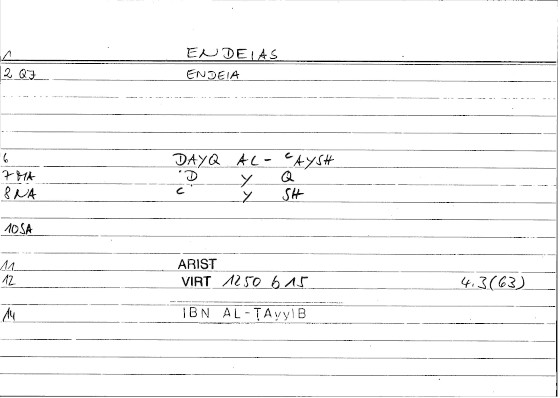 1 ENDEIAS
2 QJ ENDEIA
6 ḌAYQ AL-ʿAYSH
7 MA Ḍ Y Q
8 NA ʿ Y SH
10 SA
11 ARIST
12 VIRT 1250 b 15 4.3(63)
14 IBN AL-ṬAyyIB